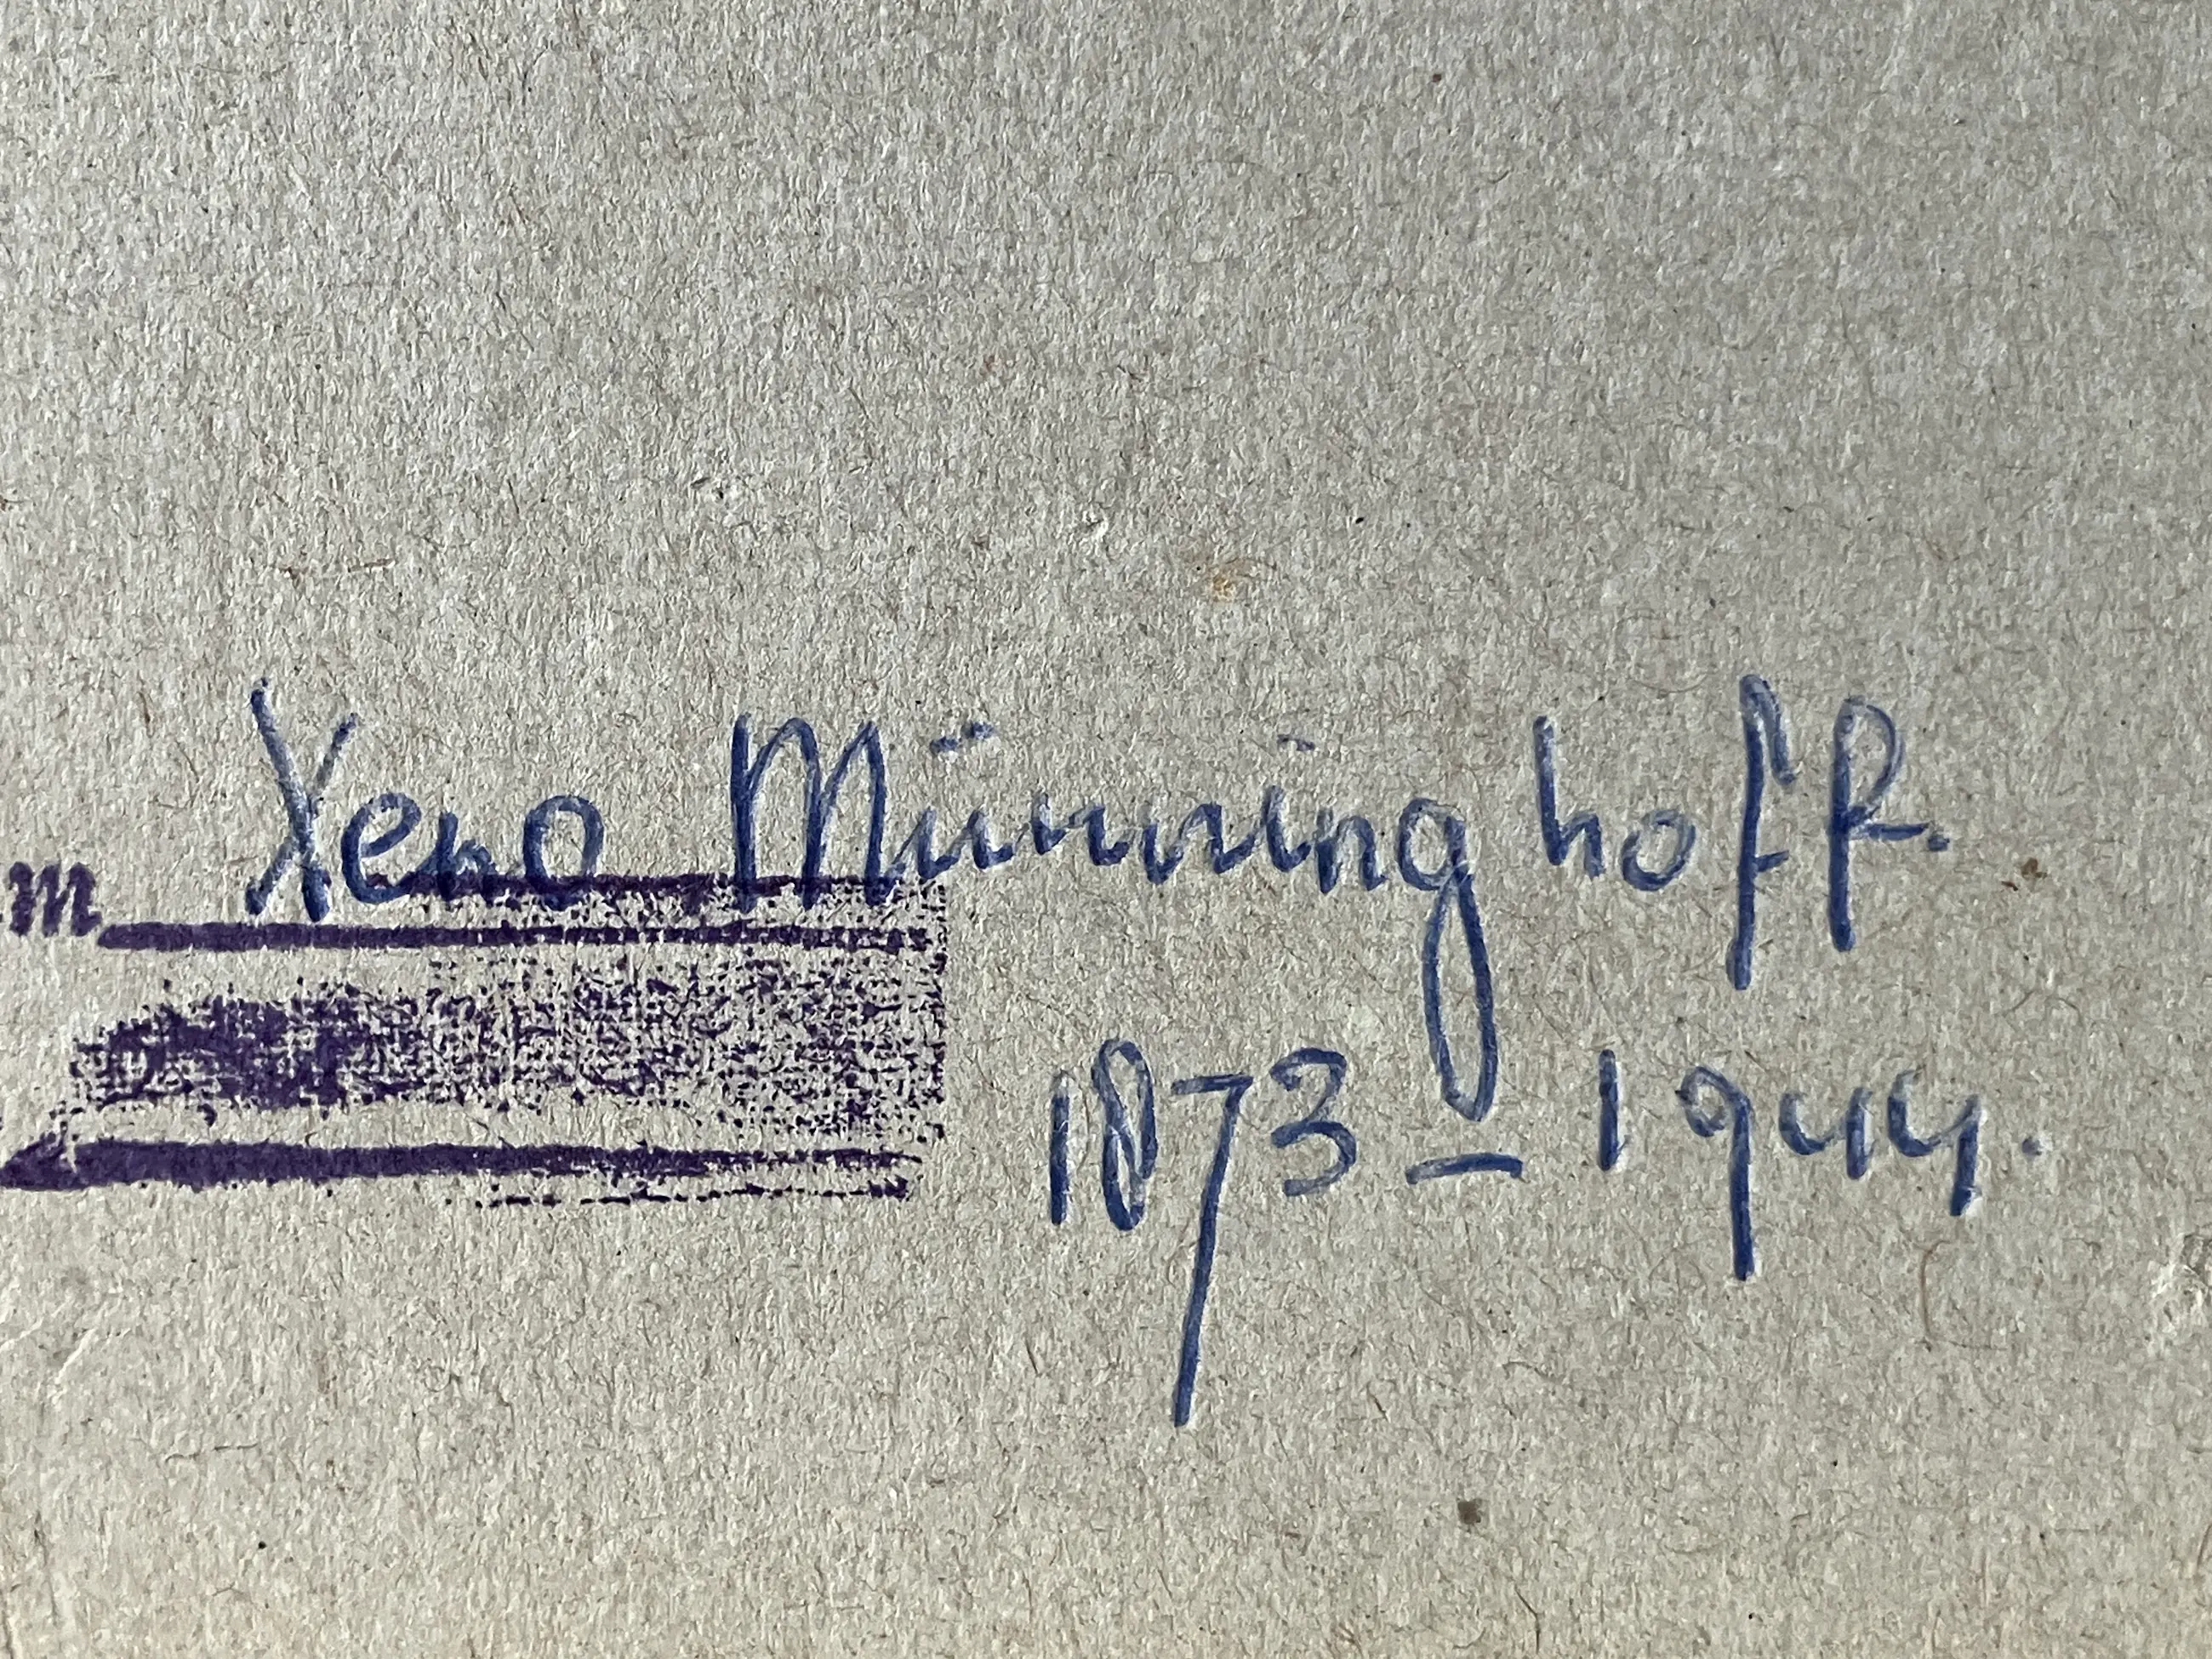 Xeno Münninghoff.
m
1873 - 1944.